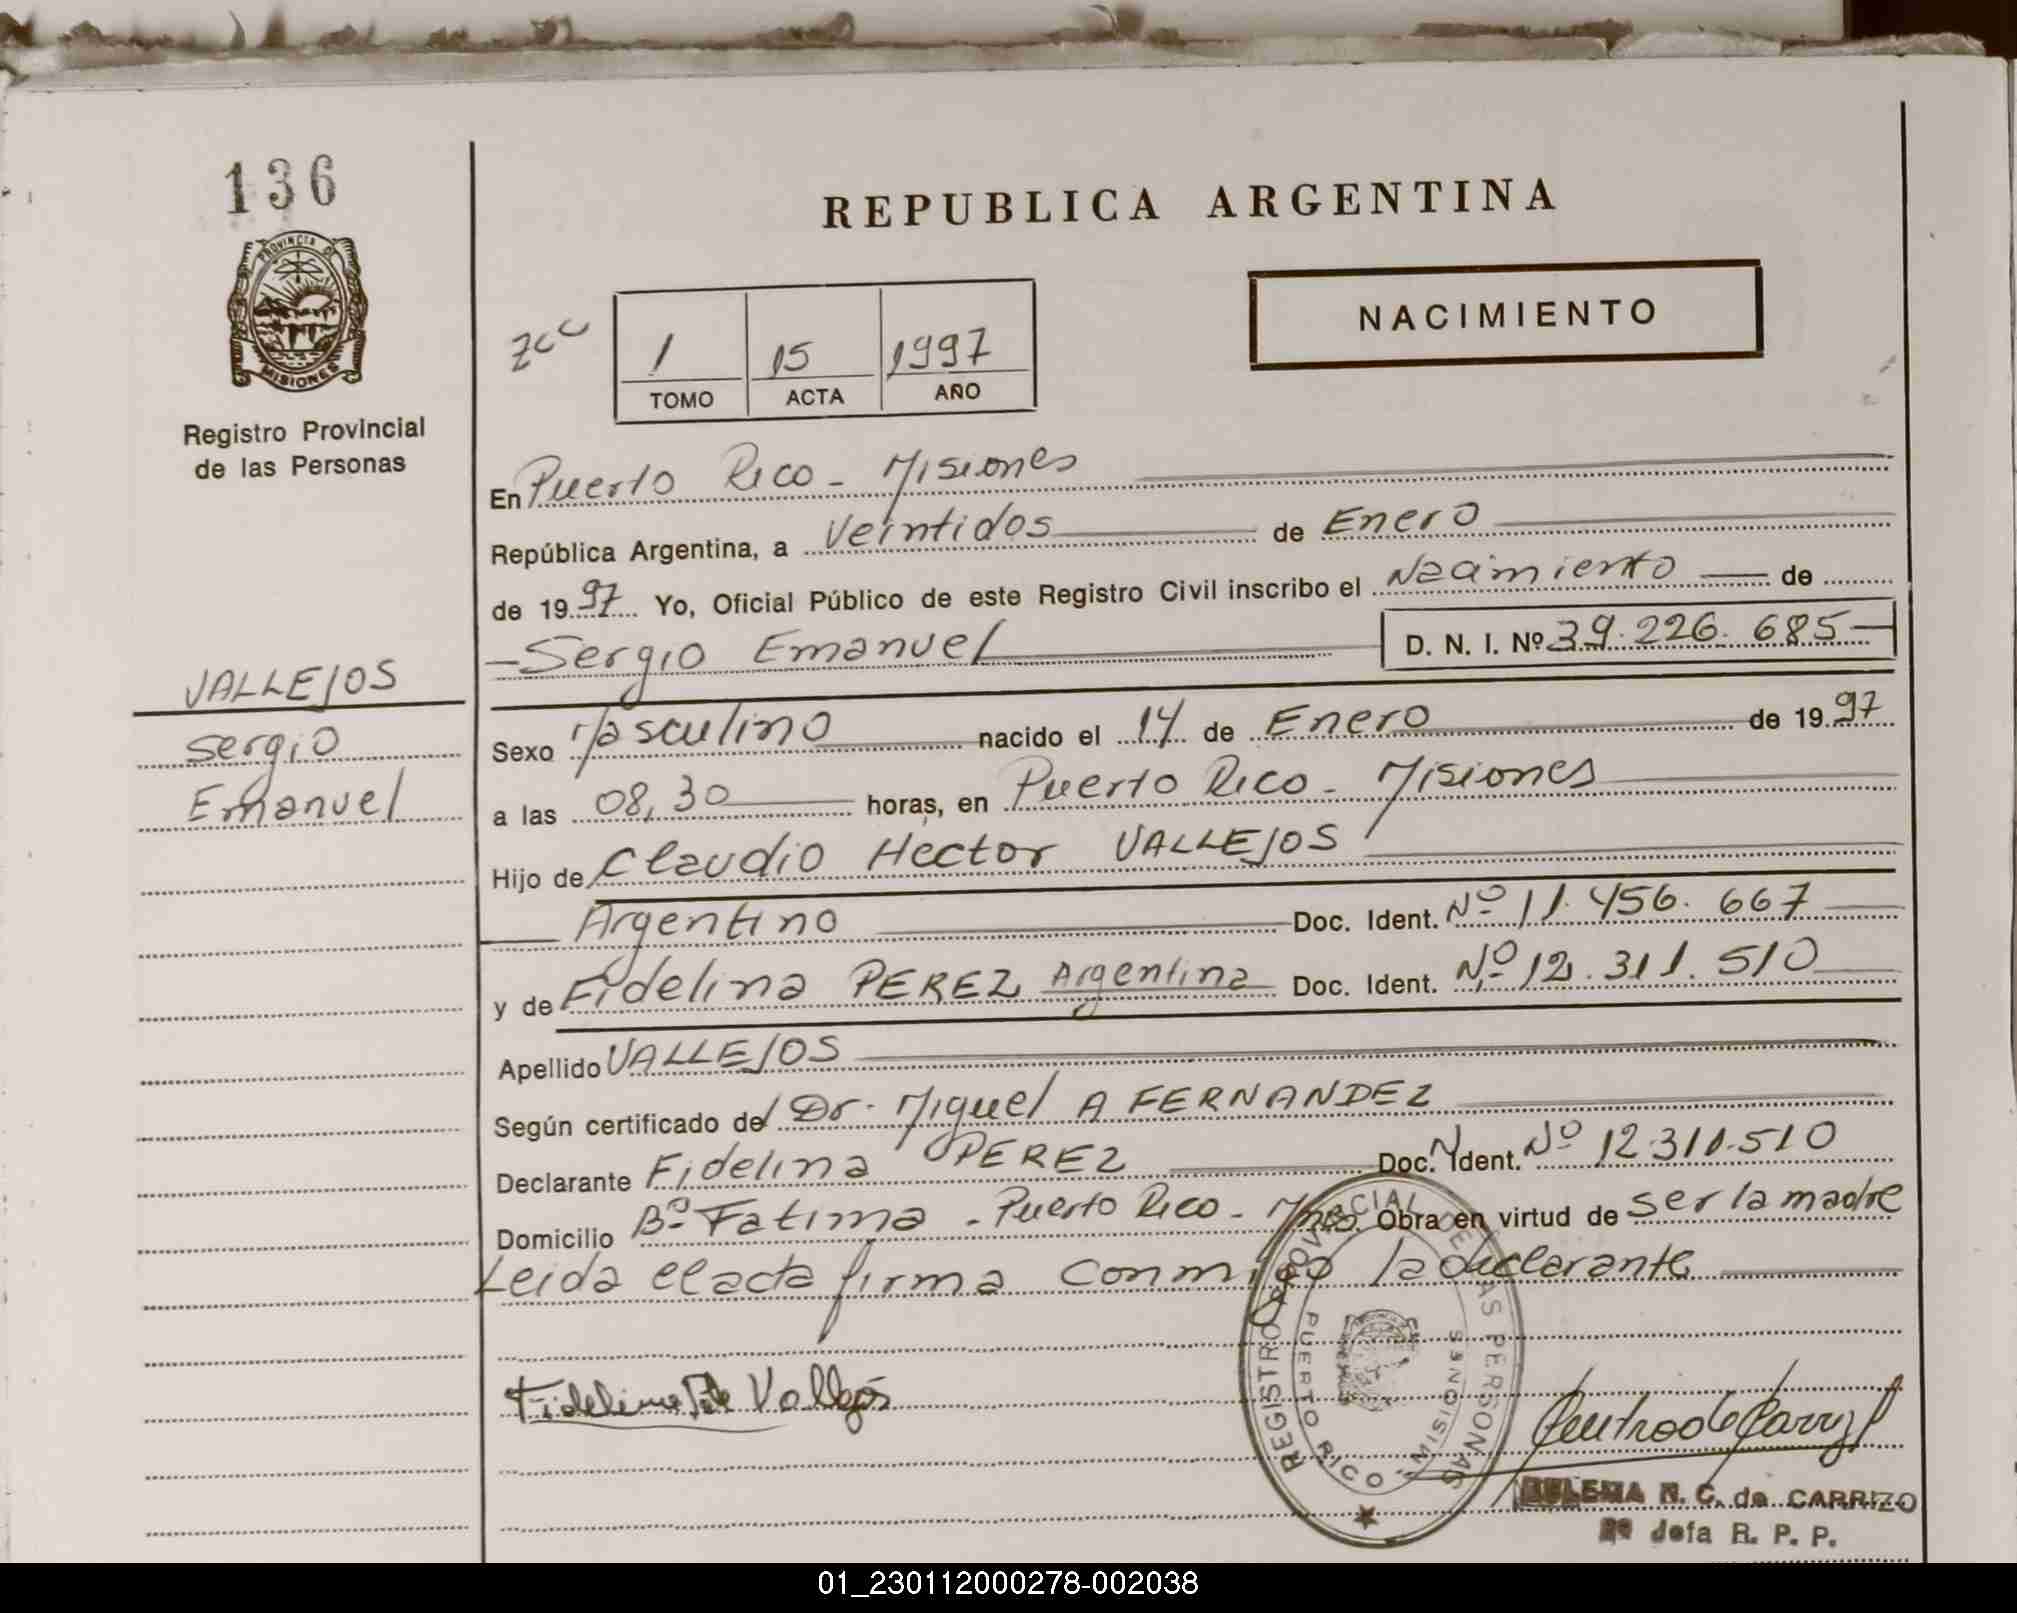 136
REPUBLICA ARGENTINA
PROVINCIA DE MISIONES
Registro Provincial
de las Personas
NACIMIENTO
1 15 1997
TOMO ACTA AÑO
En Puerto Rico - Misiones
República Argentina, a Veintidos de Enero
de 1997 Yo, Oficial Público de este Registro Civil inscribo el Nacimiento de
Sergio Emanuel D. N. I. Nº 39.226.685
VALLEJOS
Sergio
Emanuel
Sexo Masculino nacido el 14 de Enero de 1997
a las 08,30 horas, en Puerto Rico - Misiones
Hijo de Claudio Hector VALLEJOS
Argentino Doc. Ident. Nº 11.456.667
y de Fidelina PEREZ Argentina Doc. Ident. Nº 12.311.510
Apellido VALLEJOS
Según certificado del Dr. Miguel A FERNANDEZ
Declarante Fidelina PEREZ Doc. Ident. Nº 12.311.510
Domicilio Bº Fatima - Puerto Rico - Mnes. Obra en virtud de ser la madre
Leida el acta firma conmigo la declarante
REGISTRO PROVINCIAL DE LAS PERSONAS
PUERTO RICO - MISIONES
Fidelina de Vallejos
N. C. de CARRIZO
Jefa R. P. P.
01_230112000278-002038